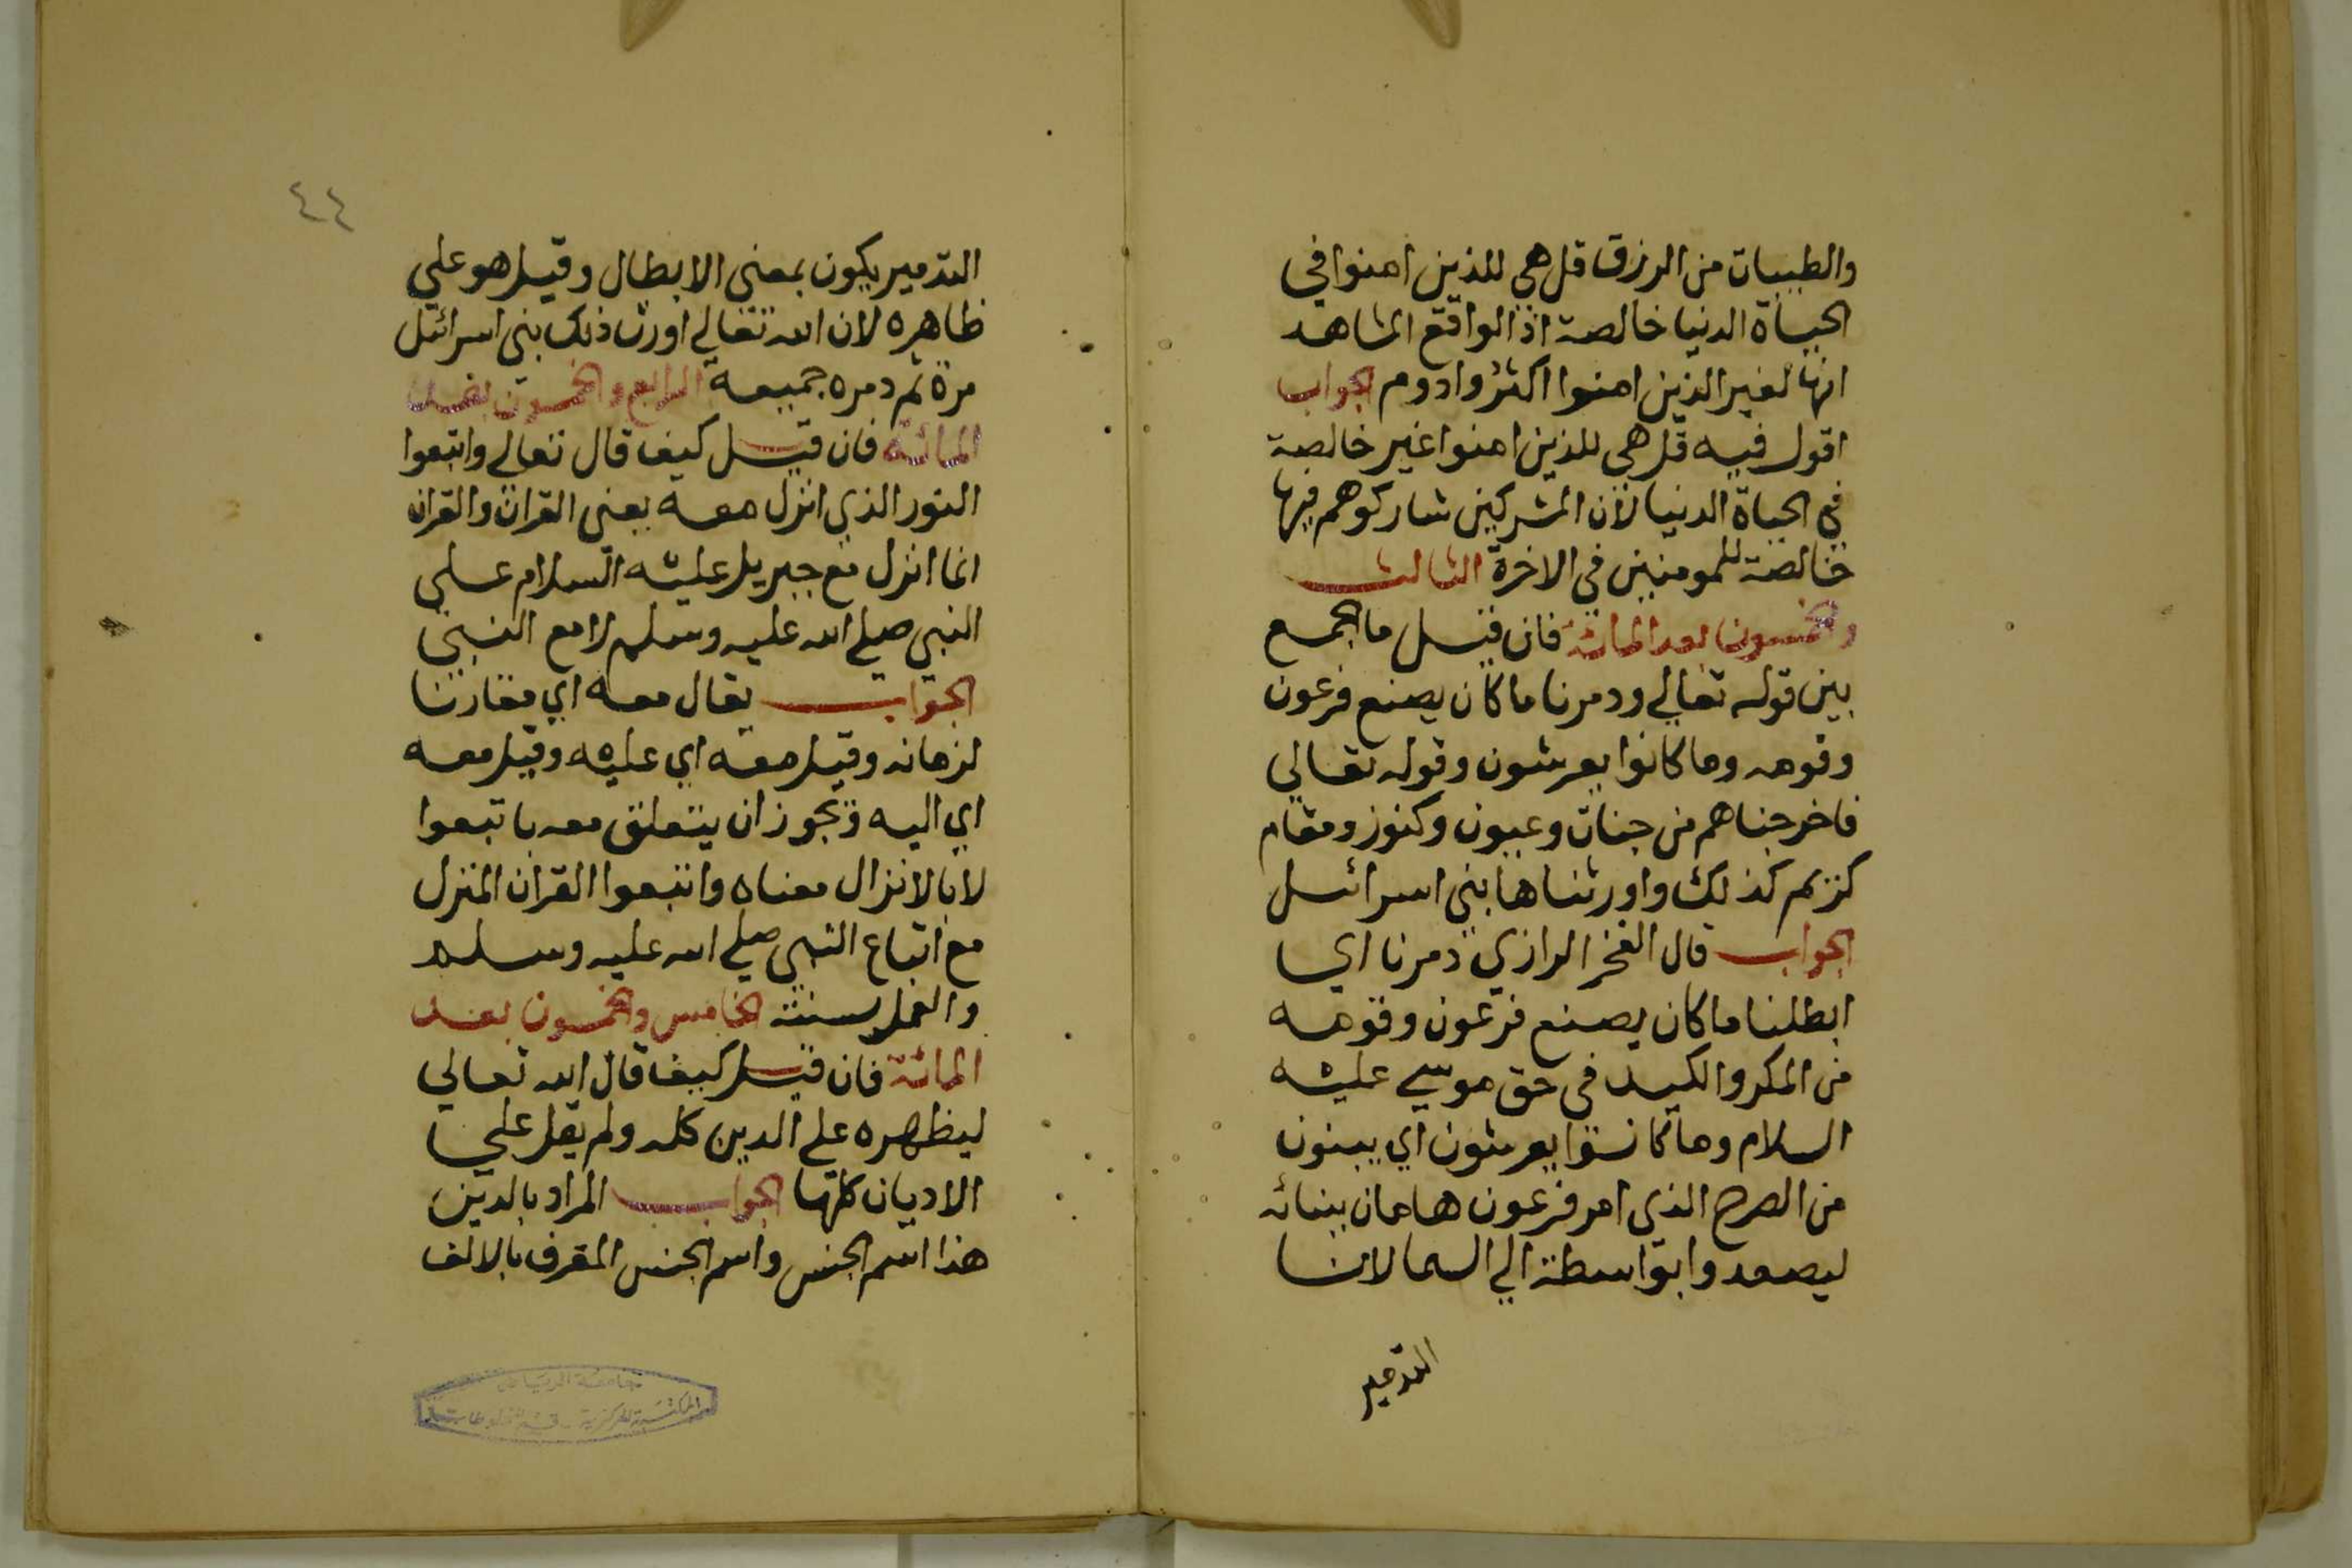 والطيبات من الرزق قل هي للذين امنوا في
الحياة الدنيا خالصة اذ الواقع المشاهد
انها لغير الذين امنوا اكثر وادوم الجواب
اقول فيه قل هي للذين امنوا غير خالصة
في الحياة الدنيا لان المشركين شاركوهم فيها
خالصة للمومنين في الاخرة الثالث
والخمسون بعد المائة فان قيل ما الجمع
بين قوله تعالي ودمرنا ما كان يصنع فرعون
وقومه وما كانوا يعرشون وقوله تعالي
فاخرجناهم من جنات وعيون وكنوز ومقام
كريم كذلك واورثناها بني اسرائيل
الجواب قال الفخر الرازي دمرنا اي
ابطلنا ما كان يصنع فرعون وقومه
من المكر والكيد في حق موسي عليه
السلام وما كانوا يعرشون اي يبنون
من الصرح الذي امر فرعون هامان ببنائه
ليصعدوا بواسطة الي السما لان
التدمير
٤٤
التدمير يكون بمعني الابطال وقيل هو علي
ظاهره لان الله تعالي اورث ذلك بني اسرائيل
مرة ثم دمره جميعه الرابع والخمسون بعد
المائة فان قيل كيف قال تعالي واتبعوا
النور الذي انزل معه يعني القران والقران
انما انزل مع جبريل عليه السلام علي
النبي صلي الله عليه وسلم لا مع النبي
الجواب يقال معه اي مقارنا
لزمانه وقيل معه اي عليه وقيل معه
اي اليه ويجوز ان يتعلق معه باتبعوا
لا بالانزال معناه واتبعوا القران المنزل
مع اتباع النبي صلي الله عليه وسلم
والعمل بسنته الخامس والخمسون بعد
المائة فان قيل كيف قال الله تعالي
ليظهره علي الدين كله ولم يقل علي
الاديان كلها الجواب المراد بالدين
هذا اسم الجنس واسم الجنس المعرف بالالف
جامعة الرياض
المكتبة المركزية - قسم المخطوطات